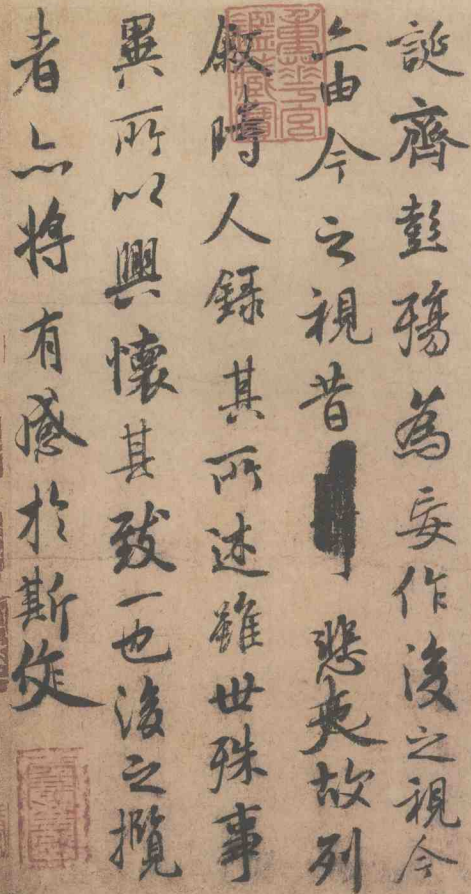 誕齊彭殤為妄作後之視今
亦由今之視昔悲夫故列
敘時人錄其所述雖世殊事
異所以興懷其致一也後之攬
者亦將有感於斯文
重華宮
鑑藏寶